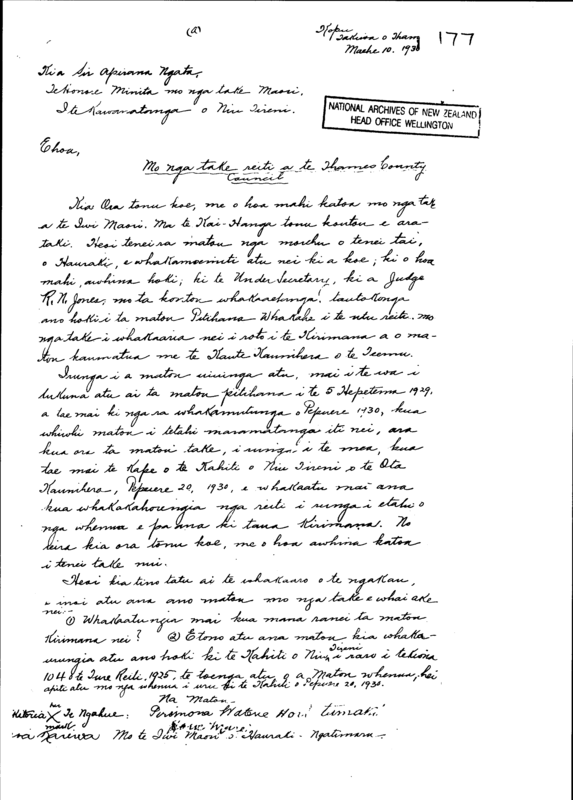 (a)
Kopu
Takiwa o Thames
Maehe 10. 1930
177
Kia Sir Apirana Ngata,
Te Honore Minita mo nga take Maori.
I te Kawanatanga o Niu Tireni.
NATIONAL ARCHIVES OF NEW ZEALAND
HEAD OFFICE WELLINGTON
Ehoa,
Mo nga take reiti a te Thames County
Council
Kia Ora tonu koe, me o hoa mahi katoa mo nga take
a te Iwi Maori. Ma te Kai-Hanga tonu koutou e ara-
taki. Heoi tenei ra matou nga morehu o tenei tai,
o Hauraki, e whakamoemiti atu nei ki a koe; ki o hoa
mahi, awhina hoki, ki te Under Secretary, ki a Judge
R. N. Jones, mo ta koutou whakaaetunga, tautokonga
ano hoki i ta matou Pitihana Whakahe i te utu reiti. mo
nga take i whakaaria nei i roto i te Kirimana a o ma-
tou kaumatua me te Kaute Kaunihera o te Teemu.
I runga i a matou uiuinga atu, mai i te wa i
tukuna atu ai ta matou pitihana i te 5 Hepetema 1929.
a tae mai ki nga ra whakamutunga o Pepuere 1930, kua
whiwhi matou i tetahi maramatanga iti nei, ara
kua ora ta matou take, i runga i te mea, kua
tae mai te Kape o te Kahiti o Niu Tireni o te Ota
Kaunihera, Pepuere 20, 1930, e whakaatu mai ana
kua whakakahoretia nga reiti i runga i etahi o
nga whenua e pa ana ki taua Kirimana. No
reira kia ora tonu koe, me o hoa awhina katoa
i tenei take nui.
Heoi kia tino tatu ai te whakaaro o te ngakau,
e inoi atu ana ano matou mo nga take e whai ake
nei:-
(1) Whakaatungia mai kua mana ranei ta matou
Kirimana nei? (2) E tono atu ana matou kia whaka-
urungia atu ano hoki ki te Kahiti o Niu Tireni i raro i tekiona
104 o te Ture Reiti, 1925, te toenga atu o a Matou whenua, hei
apiti atu mo nga whenua i uru ki te Kahiti o Pepuere 20, 1930.
Na Matou
her
X Te Ngahue.
mark
Watene
Mo te Iwi Maori o Hauraki - Ngatimaru.